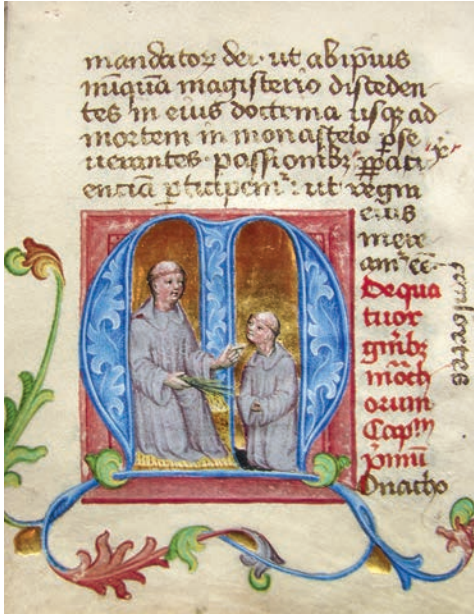 mandatoꝝ dei· ut ab ip̄ius
nūquā magisterio disceden
tes in eius doctrina usqꝫ ad
mortem in monasterio ꝑse
uerantes passionibꝫ ꝑ pati
enciā ꝑticipemꝰ: ut regni
eius
mere
amꝰ eē·
De qua
tuor
gn̄ibꝫ
mōch
orum
Capᵐ
p̄mū
Onacho
consortes